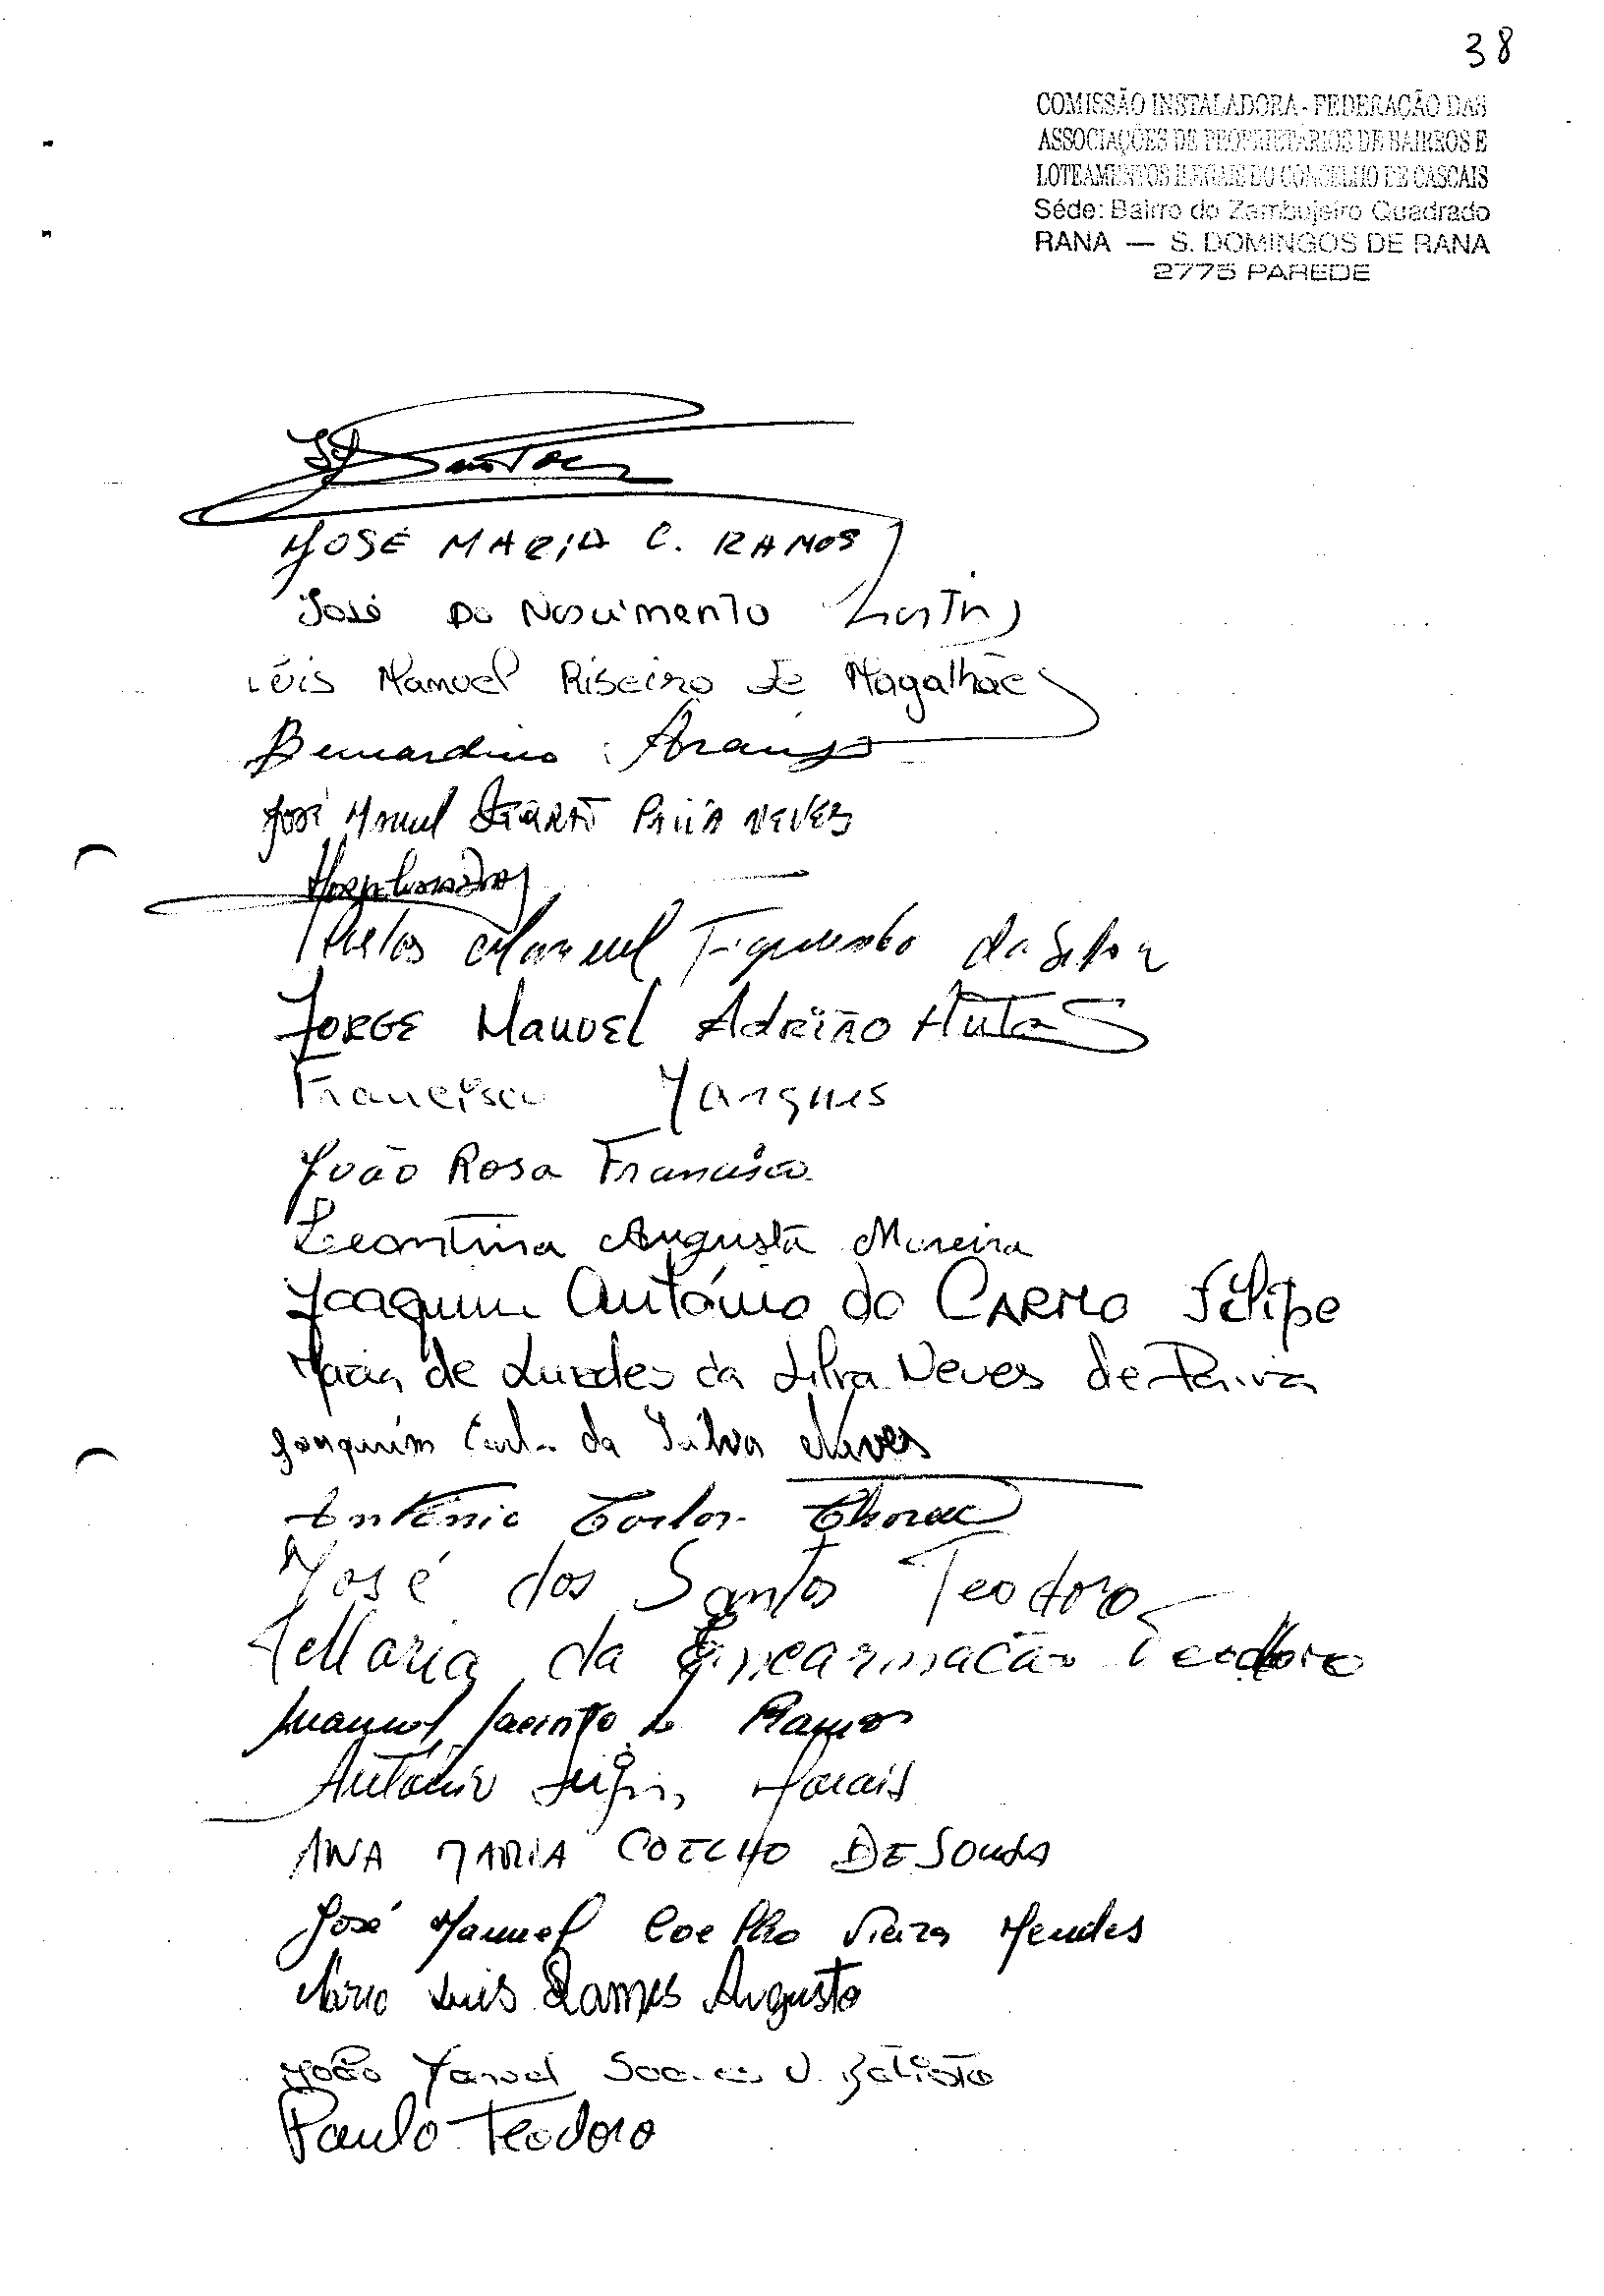 38
COMISSÃO INSTALADORA - FEDERAÇÃO DAS
ASSOCIAÇÕES DE PROPRIETÁRIOS DE BAIRROS E
LOTEAMENTOS ILEGAIS DO CONCELHO DE CASCAIS
Séde: Bairro do Zambujeiro Quadrado
RANA — S. DOMINGOS DE RANA
2775 PAREDE
JOSÉ MARIA C. RAMOS
José Do Nascimento
Luis Manuel Ribeiro de Magalhães
Bernardino Araujo
José Manuel PAIVA NEVES
Manuel Figueiredo da Silva
JORGE Manuel Adrião Antas
Francisco Marques
João Rosa Francisco
Leontina Augusta Moreira
Joaquim António do CARMO Felipe
Maria de Lurdes da Silva Neves de Paiva
Joaquim Carlos da Silva Neves
António Carlos
José dos Santos Teodoro
Maria da Encarnação Teodoro
Manuel Jacinto Ramos
António Morais
ANA MARIA COELHO DE SOUSA
José Manuel Coelho Vieira Mendes
Mário Luis Ramos Augusto
João Manuel Soares V. Batista
Paulo Teodoro